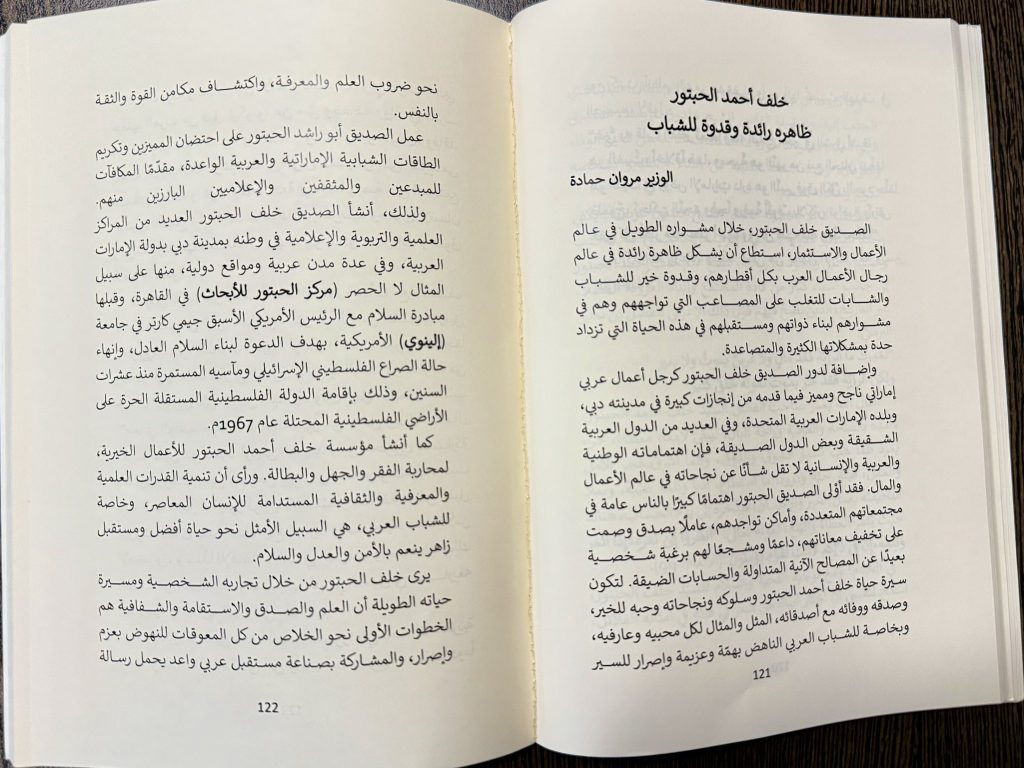 خلف أحمد الحبتور
ظاهره رائدة وقدوة للشباب
الوزير مروان حمادة
الصديق خلف الحبتور، خلال مشواره الطويل في عالم
الأعمال والاستثمار، استطاع أن يشكل ظاهرة رائدة في عالم
رجال الأعمال العرب بكل أقطارهم، وقدوة خير للشباب
والشابات للتغلب على المصاعب التي تواجههم وهم في
مشوارهم لبناء ذواتهم ومستقبلهم في هذه الحياة التي تزداد
حدة بمشكلاتها الكثيرة والمتصاعدة.
وإضافة لدور الصديق خلف الحبتور كرجل أعمال عربي
إماراتي ناجح ومميز فيما قدمه من إنجازات كبيرة في مدينته دبي،
وبلده الإمارات العربية المتحدة، وفي العديد من الدول العربية
الشقيقة وبعض الدول الصديقة، فإن اهتماماته الوطنية
والعربية والإنسانية لا تقل شأنًا عن نجاحاته في عالم الأعمال
والمال. فقد أؤلى الصديق الحبتور اهتمامًا كبيرًا بالناس عامة في
مجتمعاتهم المتعددة، وأماكن تواجدهم، عاملًا بصدق وصمت
على تخفيف معاناتهم، داعمًا ومشجعًا لهم برغبة شخصية
بعيدًا عن المصالح الآنية المتداولة والحسابات الضيقة. لتكون
سيرة حياة خلف أحمد الحبتور وسلوكه ونجاحاته وحبه للخير،
وصدقه ووفائه مع أصدقائه، المثل والمثال لكل محبيه وعارفيه،
وبخاصة للشباب العربي الناهض بهمّة وعزيمة وإصرار للسير
121
نحو ضروب العلم والمعرفة، واكتشاف مكامن القوة والثقة
بالنفس.
عمل الصديق أبو راشد الحبتور على احتضان المميزين وتكريم
الطاقات الشبابية الإماراتية والعربية الواعدة، مقدّمًا المكافآت
للمبدعين والمثقفين والإعلاميين البارزين منهم.
ولذلك، أنشأ الصديق خلف الحبتور العديد من المراكز
العلمية والتربوية والإعلامية في وطنه بمدينة دبي بدولة الإمارات
العربية، وفي عدة مدن عربية ومواقع دولية، منها على سبيل
المثال لا الحصر (مركز الحبتور للأبحاث) في القاهرة، وقبلها
مبادرة السلام مع الرئيس الأمريكي الأسبق جيمي كارتر في جامعة
(إلينوي) الأمريكية، بهدف الدعوة لبناء السلام العادل، وإنهاء
حالة الصراع الفلسطيني الإسرائيلي ومآسيه المستمرة منذ عشرات
السنين، وذلك بإقامة الدولة الفلسطينية المستقلة الحرة على
الأراضي الفلسطينية المحتلة عام 1967م.
كما أنشأ مؤسسة خلف أحمد الحبتور للأعمال الخيرية،
لمحاربة الفقر والجهل والبطالة. ورأى أن تنمية القدرات العلمية
والمعرفية والثقافية المستدامة للإنسان المعاصر، وخاصة
للشباب العربي، هي السبيل الأمثل نحو حياة أفضل ومستقبل
زاهر ينعم بالأمن والعدل والسلام.
يرى خلف الحبتور من خلال تجاربه الشخصية ومسيرة
حياته الطويلة أن العلم والصدق والاستقامة والشفافية هم
الخطوات الأولى نحو الخلاص من كل المعوقات للنهوض بعزم
وإصرار، والمشاركة بصناعة مستقبل عربي واعد يحمل رسالة
122